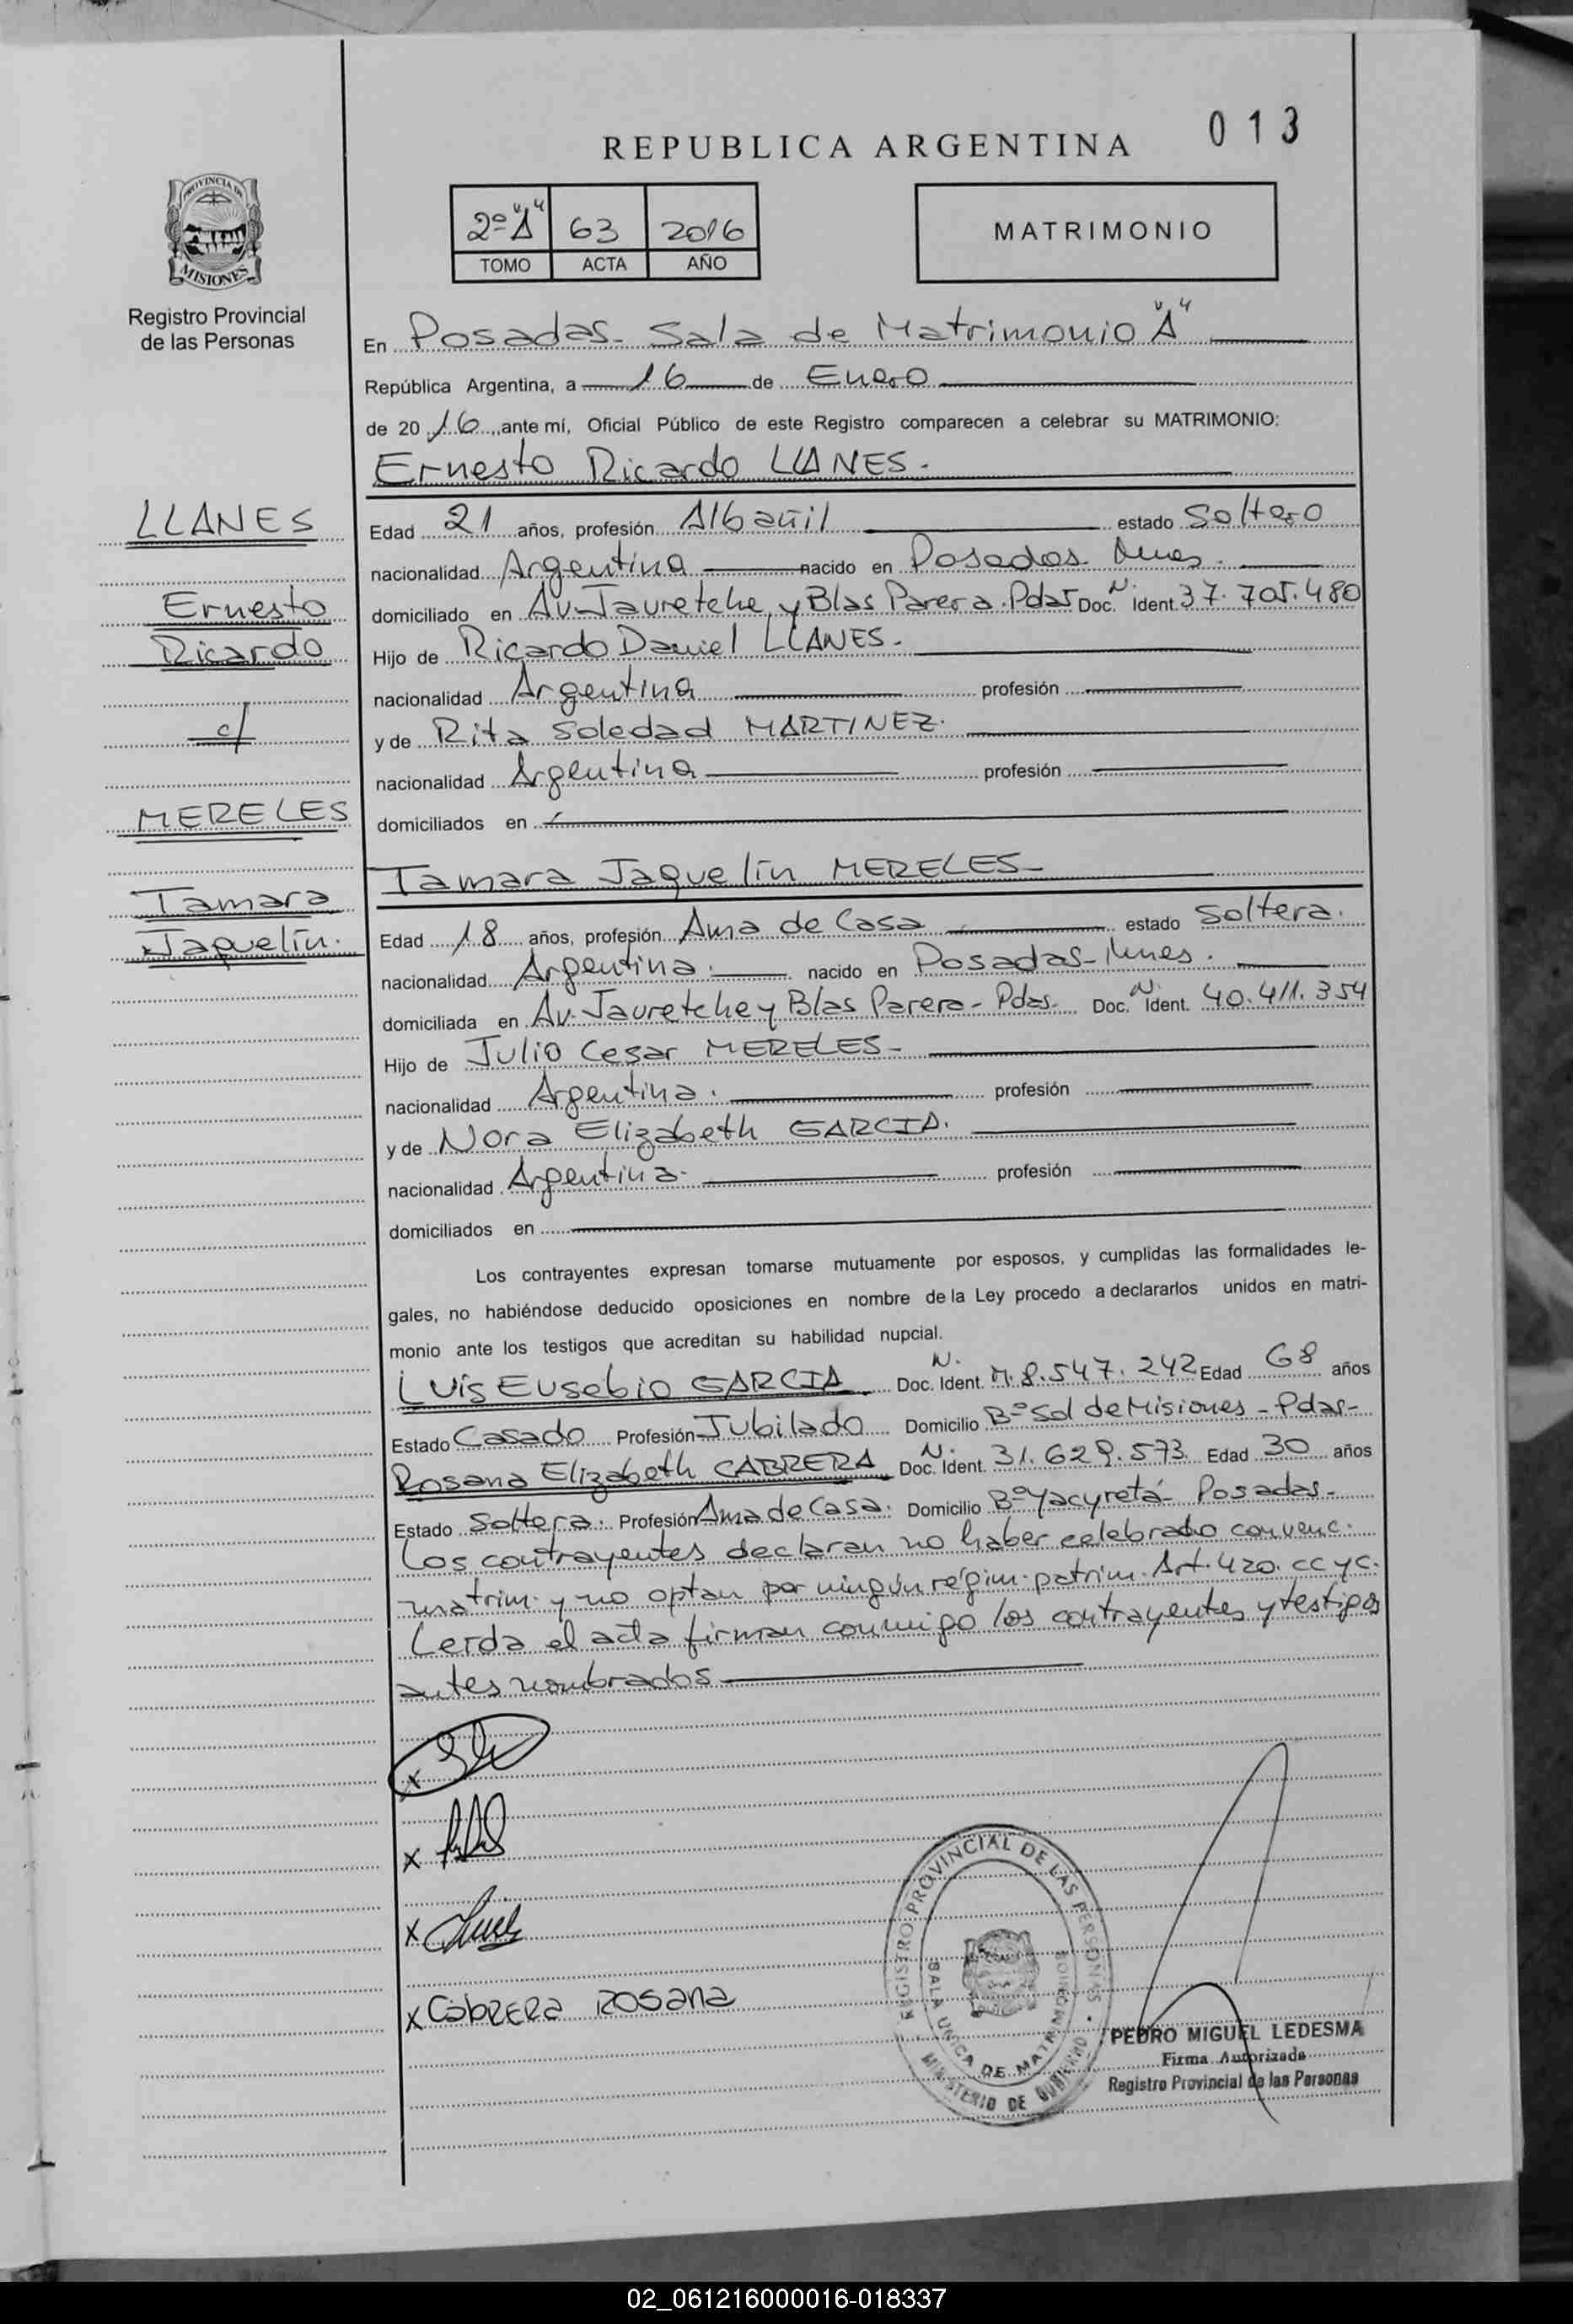 013
REPUBLICA ARGENTINA
2º "A" 63 2016
TOMO ACTA AÑO
MATRIMONIO
PROVINCIA DE MISIONES
Registro Provincial
de las Personas
En Posadas - Sala de Matrimonio "A"
República Argentina, a 16 de Enero
de 2016, ante mí, Oficial Público de este Registro comparecen a celebrar su MATRIMONIO:
Ernesto Ricardo LLANES.
LLANES
Ernesto
Ricardo
c/
MERELES
Tamara
Jaquelín.
Edad 21 años, profesión Albañil estado Soltero
nacionalidad Argentina nacido en Posadas Mnes.
domiciliado en Av. Jauretche y Blas Parera. Pdas Doc. N. Ident. 37.705.480
Hijo de Ricardo Daniel LLANES.
nacionalidad Argentina profesión
y de Rita Soledad MARTINEZ.
nacionalidad Argentina profesión
domiciliados en
Tamara Jaquelín MERELES-
Edad 18 años, profesión Ama de Casa estado Soltera.
nacionalidad Argentina. nacido en Posadas-Mnes.
domiciliada en Av. Jauretche y Blas Parera - Pdas. Doc. N. Ident. 40.411.354
Hijo de Julio Cesar MERELES-
nacionalidad Argentina. profesión
y de Nora Elizabeth GARCIA.
nacionalidad Argentina- profesión
domiciliados en
Los contrayentes expresan tomarse mutuamente por esposos, y cumplidas las formalidades le-
gales, no habiéndose deducido oposiciones en nombre de la Ley procedo a declararlos unidos en matri-
monio ante los testigos que acreditan su habilidad nupcial.
Luis Eusebio GARCIA Doc. N. Ident. M.8.547.242 Edad 68 años
Estado Casado Profesión Jubilado Domicilio Bº Sol de Misiones - Pdas-
Rosana Elizabeth CABRERA Doc. N. Ident. 31.629.573. Edad 30 años
Estado Soltera. Profesión Ama de Casa. Domicilio Bº Yacyretá- Posadas-
Los contrayentes declaran no haber celebrado convenc.
matrim. y no optan por ningún régim. patrim. Art. 420. CCyC.
Leída el acta firman conmigo los contrayentes y testigos
antes nombrados
x
x
x Luis
x CabRERa ROSana
REGISTRO PROVINCIAL DE LAS PERSONAS
SALA UNICA DE MATRIMONIO
MINISTERIO DE GOBIERNO
PEDRO MIGUEL LEDESMA
Firma Autorizada
Registro Provincial de las Personas
02_061216000016-018337